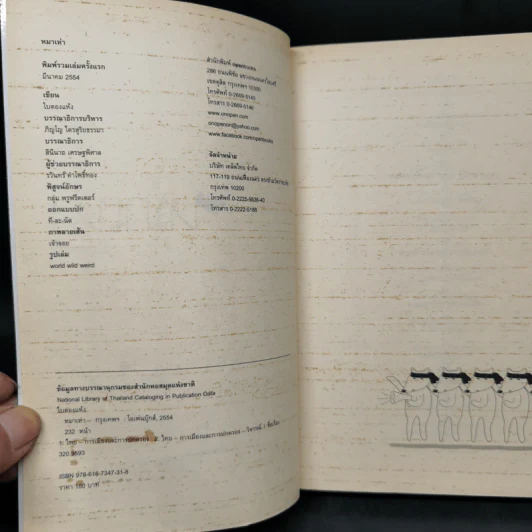 หมาเห่า
พิมพ์รวมเล่มครั้งแรก
มีนาคม 2554
เขียน
ใบตองแห้ง
บรรณาธิการบริหาร
ภิญโญ ไตรสุริยธรรมา
บรรณาธิการ
สินีนาถ เศรษฐพิศาล
ผู้ช่วยบรรณาธิการ
รวินทร์ คำโพธิ์ทอง
พิสูจน์อักษร
กลุ่ม พรูฟรีดเดอร์
ออกแบบปก
ที-ละ-นิด
ภาพลายเส้น
เจ้าจอย
รูปเล่ม
world wild weird
สำนักพิมพ์ openbooks
286 ถนนพิชัย แขวงถนนนครไชยศรี
เขตดุสิต กรุงเทพฯ 10300
โทรศัพท์ 0-2669-5145
โทรสาร 0-2669-5146
www.onopen.com
onopenon@yahoo.com
www.facebook.com/openbooks
จัดจำหน่าย
บริษัท เคล็ดไทย จำกัด
117-119 ถนนเฟื่องนคร
กรุงเทพ 10200
โทรศัพท์ 0-2225-9536-40
โทรสาร 0-2222-5188
ข้อมูลทางบรรณานุกรมของสำนักหอสมุดแห่งชาติ
National Library of Thailand Cataloging in Publication Data
ใบตองแห้ง
หมาเห่า.-- กรุงเทพฯ : โอเพ่นบุ๊กส์, 2554
232 หน้า
1. ไทย -- การเมืองและการปกครอง. 2. ไทย -- การเมืองและการปกครอง -- วิจารณ์. I ชื่อเรื่อง
320.9593
ISBN 978-616-7347-31-8
ราคา บาท